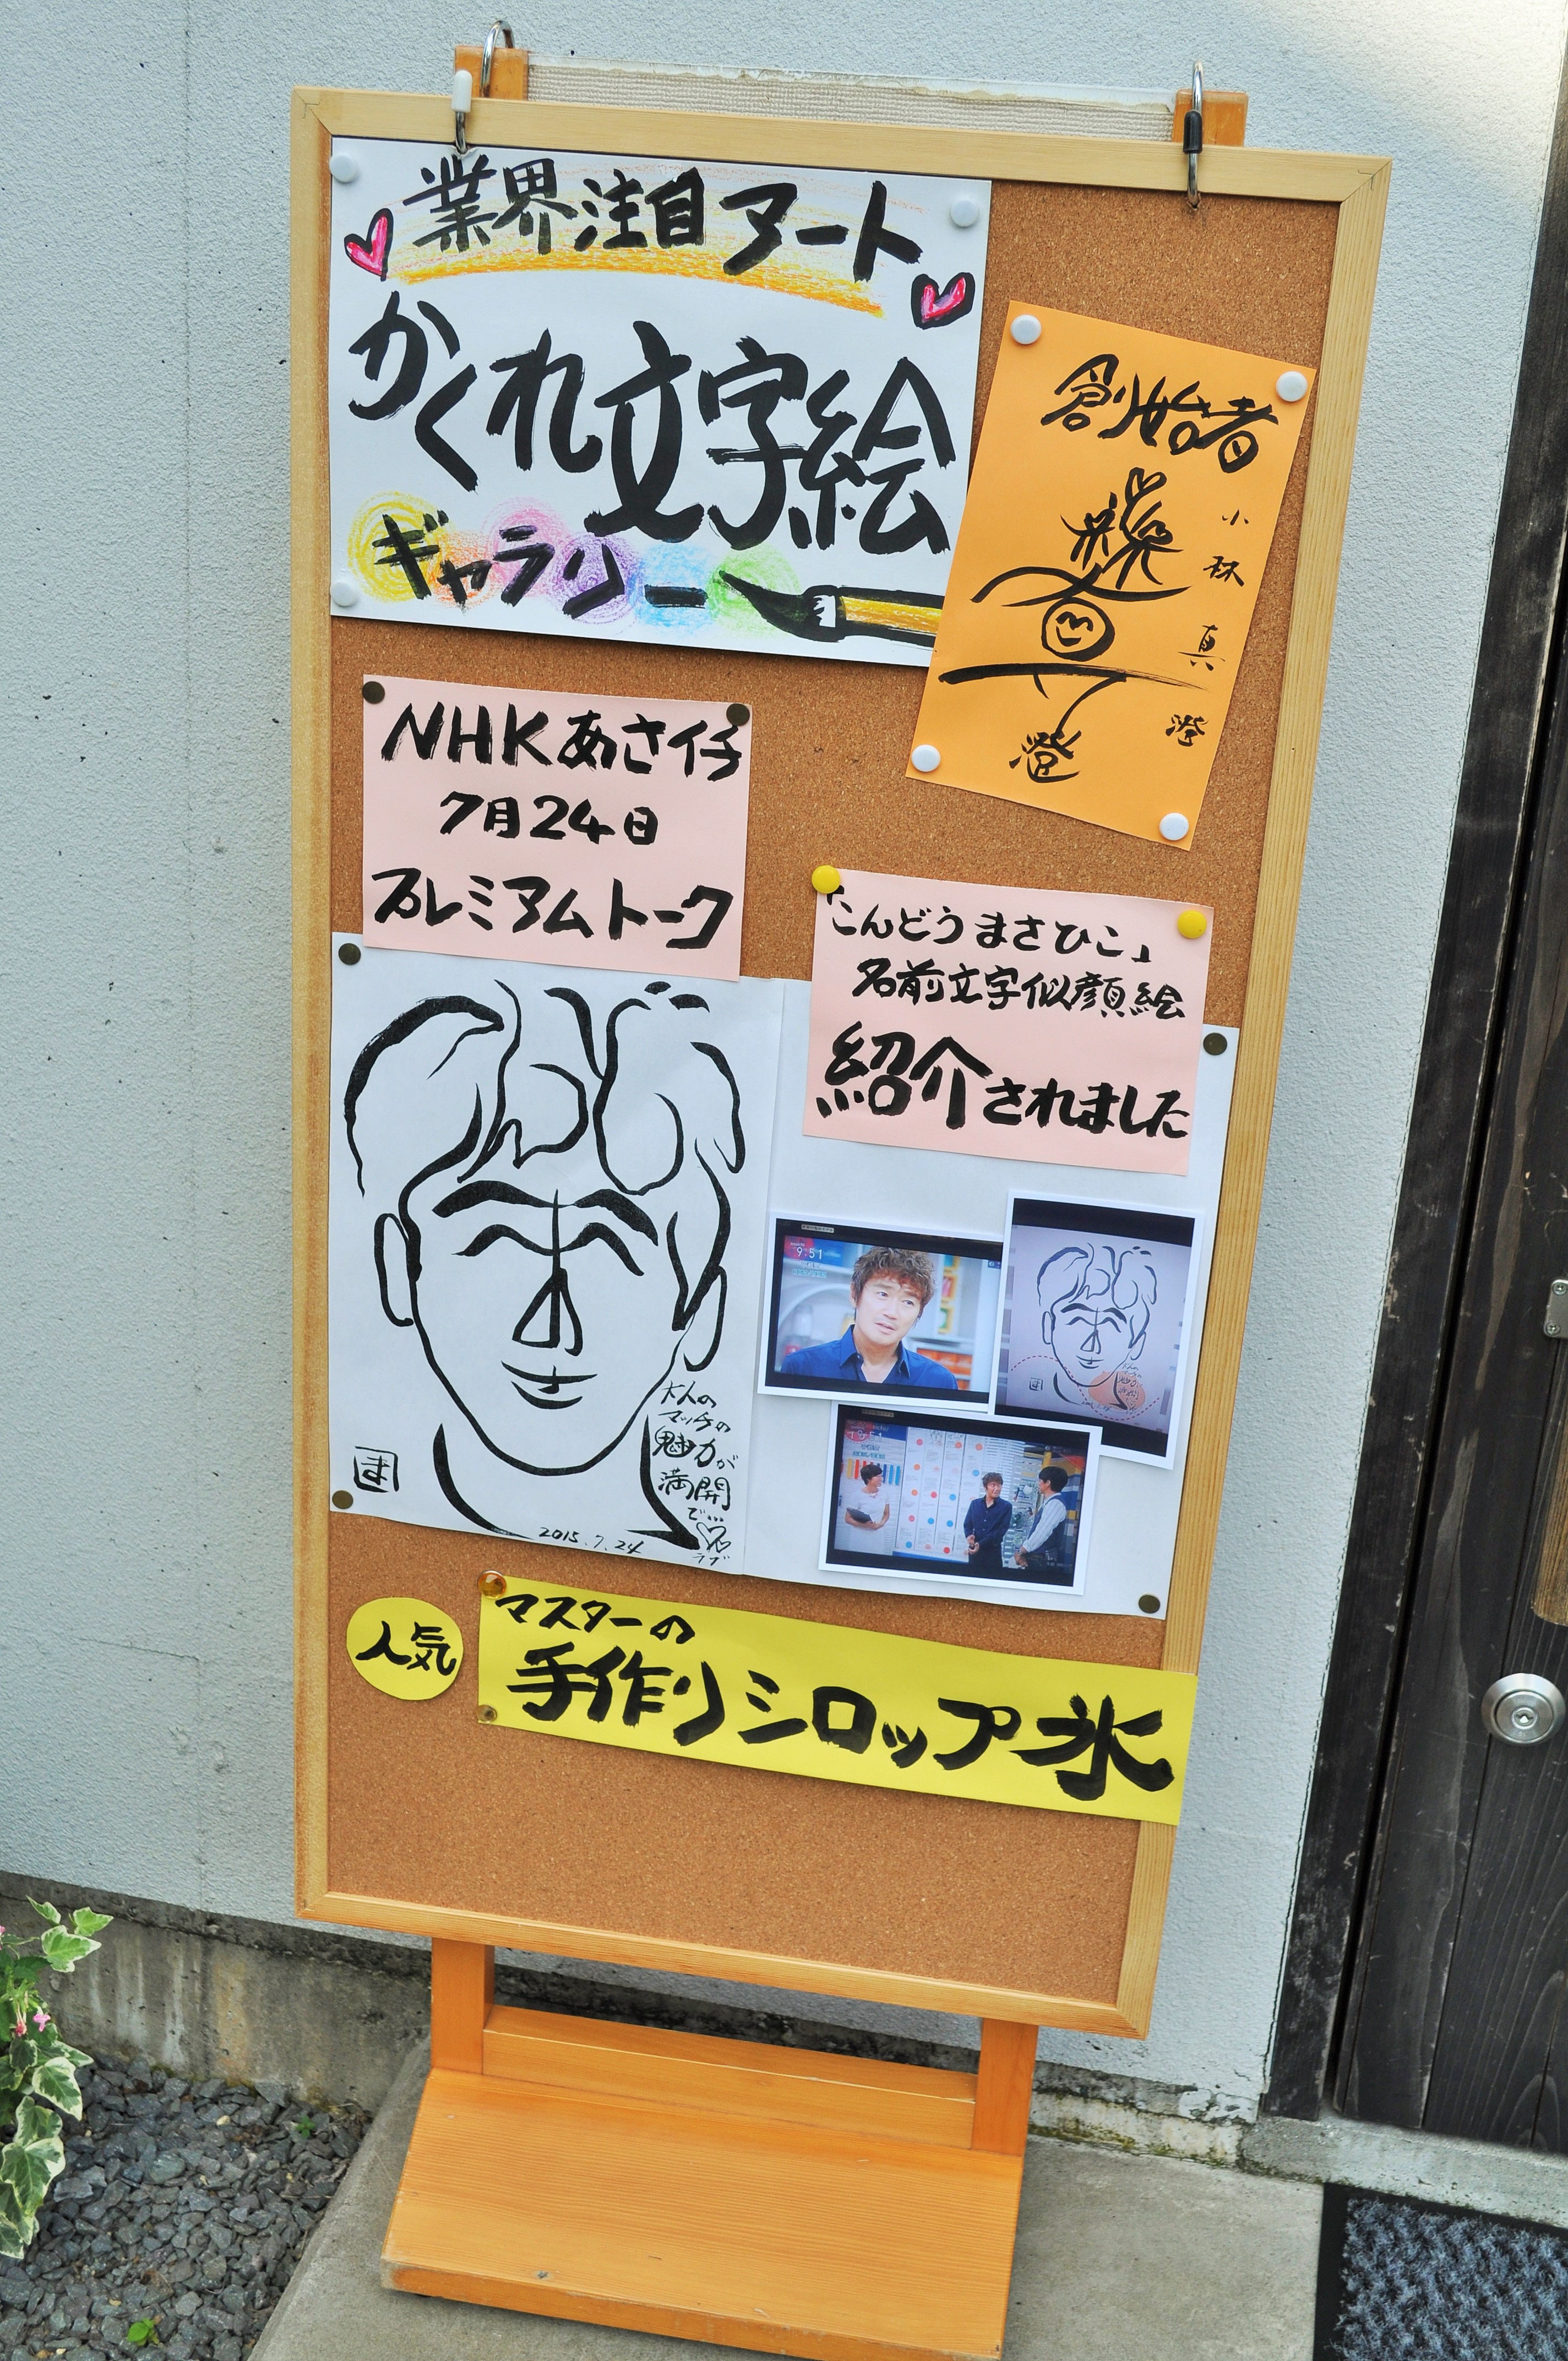 業界注目アート
かくれ文字絵
ギャラリー
創始者
小林真澄
NHKあさイチ
7月24日
プレミアムトーク
「こんどうまさひこ」
名前文字似顔絵
紹介されました
大人の
マッチの
魅力が
満開
で…
ラブ
2015.7.24
ま
9:51
人気
マスターの
手作りシロップ氷